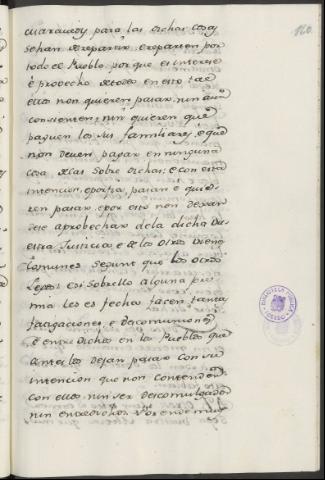 160.
maravedis para las dichas cosas
se han de repartir, e reparten por
todo el Pueblo por que es interese
è probecho de todos en esto tal
ellos non quieren pasar, nin aun
consienten, nin quieren que
paguen los sus familiares, è que
non deven pagar en ninguna
cosa de las sobre dichas: è con esta
intencion, è porfia, pasan è quie-
ren pasar, è por esto non dexan
de se aprobechar de la dicha
Justicia, è de los otros
comunes segunt que los otros
Legos: è si sobrello alguna pre-
mia les es fecha facen tantas
fatigaciones, e Descomuniones,
è entredichos en los Pueblos que
ante los dejan pasar con su
intencion que non contender
con ellos nin ser descomulgados
nin entredichos. Por ende